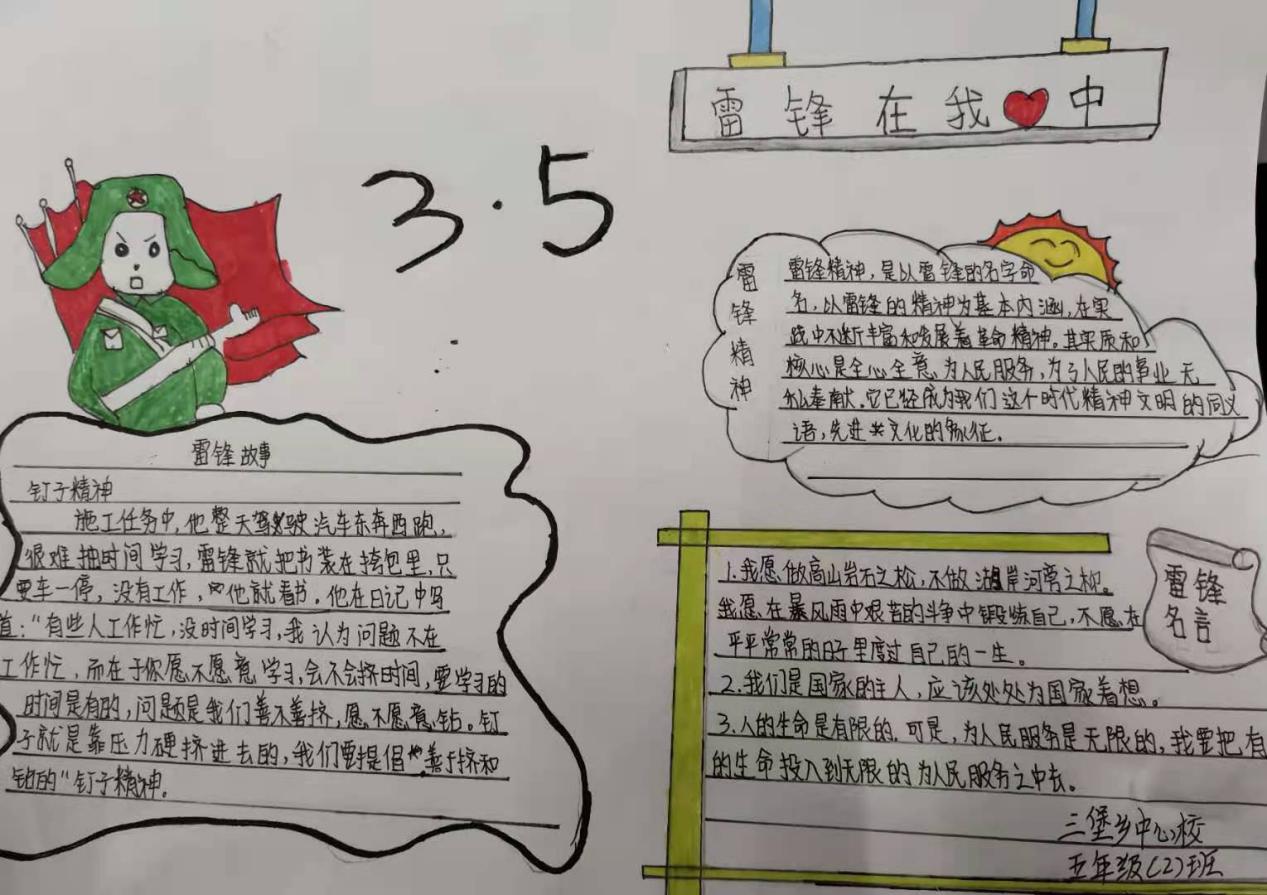 雷锋在我中
3.5
雷锋故事
钉子精神
施工任务中,他整天驾驶汽车东奔西跑,
很难抽时间学习,雷锋就把书装在挎包里,只
要车一停,没有工作,他就看书。他在日记中写
道:“有些人工作忙,没时间学习,我认为问题不在
工作忙,而在于你愿不愿意学习,会不会挤时间,要学习的
时间是有的,问题是我们善不善挤,愿不愿意钻。钉
子就是靠压力硬挤进去的,我们要提倡善于挤和
钻的“钉子精神.
雷锋精神
雷锋精神,是以雷锋的名字命
名,以雷锋的精神为基本内涵,在实
践中不断丰富和发展着革命精神。其实质和
核心是全心全意为人民服务,为了人民的事业无
私奉献.它已经成为我们这个时代精神文明的同义
语,先进文化的象征.
雷锋
名言
1.我愿做高山岩石之松,不做湖岸河旁之柳。
我愿在暴风雨中艰苦的斗争中锻炼自己,不愿在
平平常常的日子里度过自己的一生。
2.我们是国家的主人,应该处处为国家着想。
3.人的生命是有限的,可是,为人民服务是无限的,我要把有
的生命投入到无限的为人民服务之中去。
三堡乡中心校
五年级(2)班